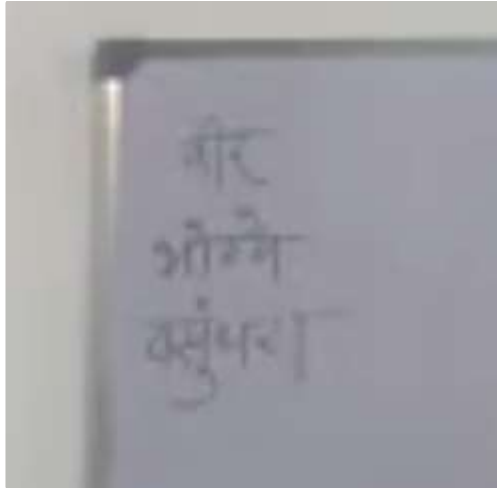 वीर
भोग्ये
वसुंधरा